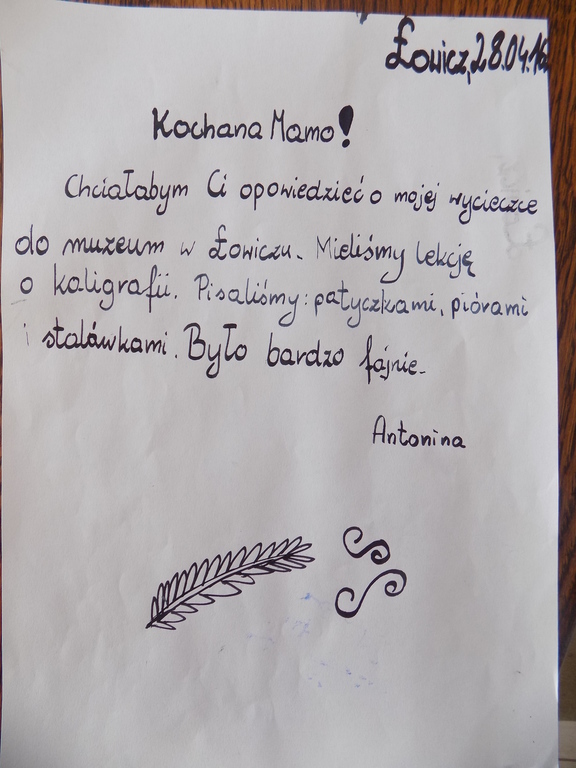 Łowicz, 28.04.16
Kochana Mamo!
Chciałabym Ci opowiedzieć o mojej wycieczce
do muzeum w Łowiczu. Mieliśmy lekcję
o kaligrafii. Pisaliśmy: patyczkami, piórami
i stalówkami. Było bardzo fajnie.
Antonina